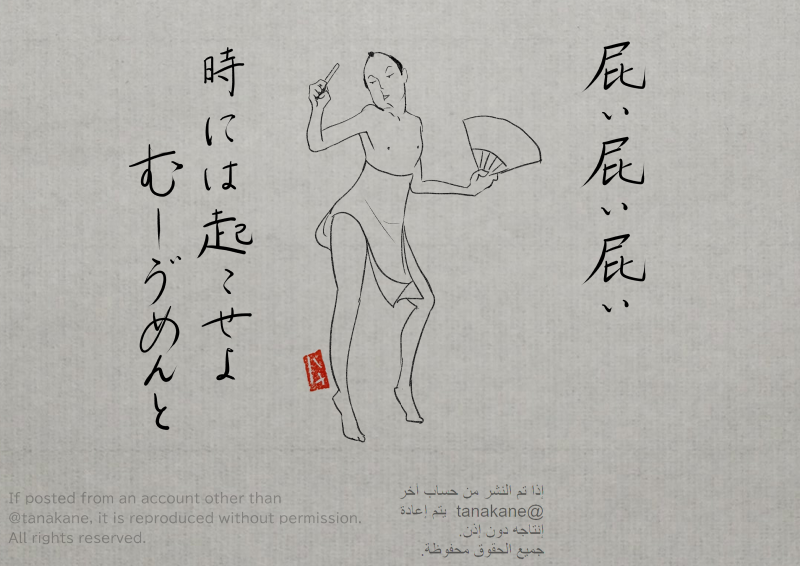 屁い屁い屁い
時には起こせよ
むーゔめんと
If posted from an account other than
@tanakane, it is reproduced without permission.
All rights reserved.
إذا تم النشر من حساب آخر
@tanakane يتم إعادة
انتاجه دون إذن.
جميع الحقوق محفوظة.